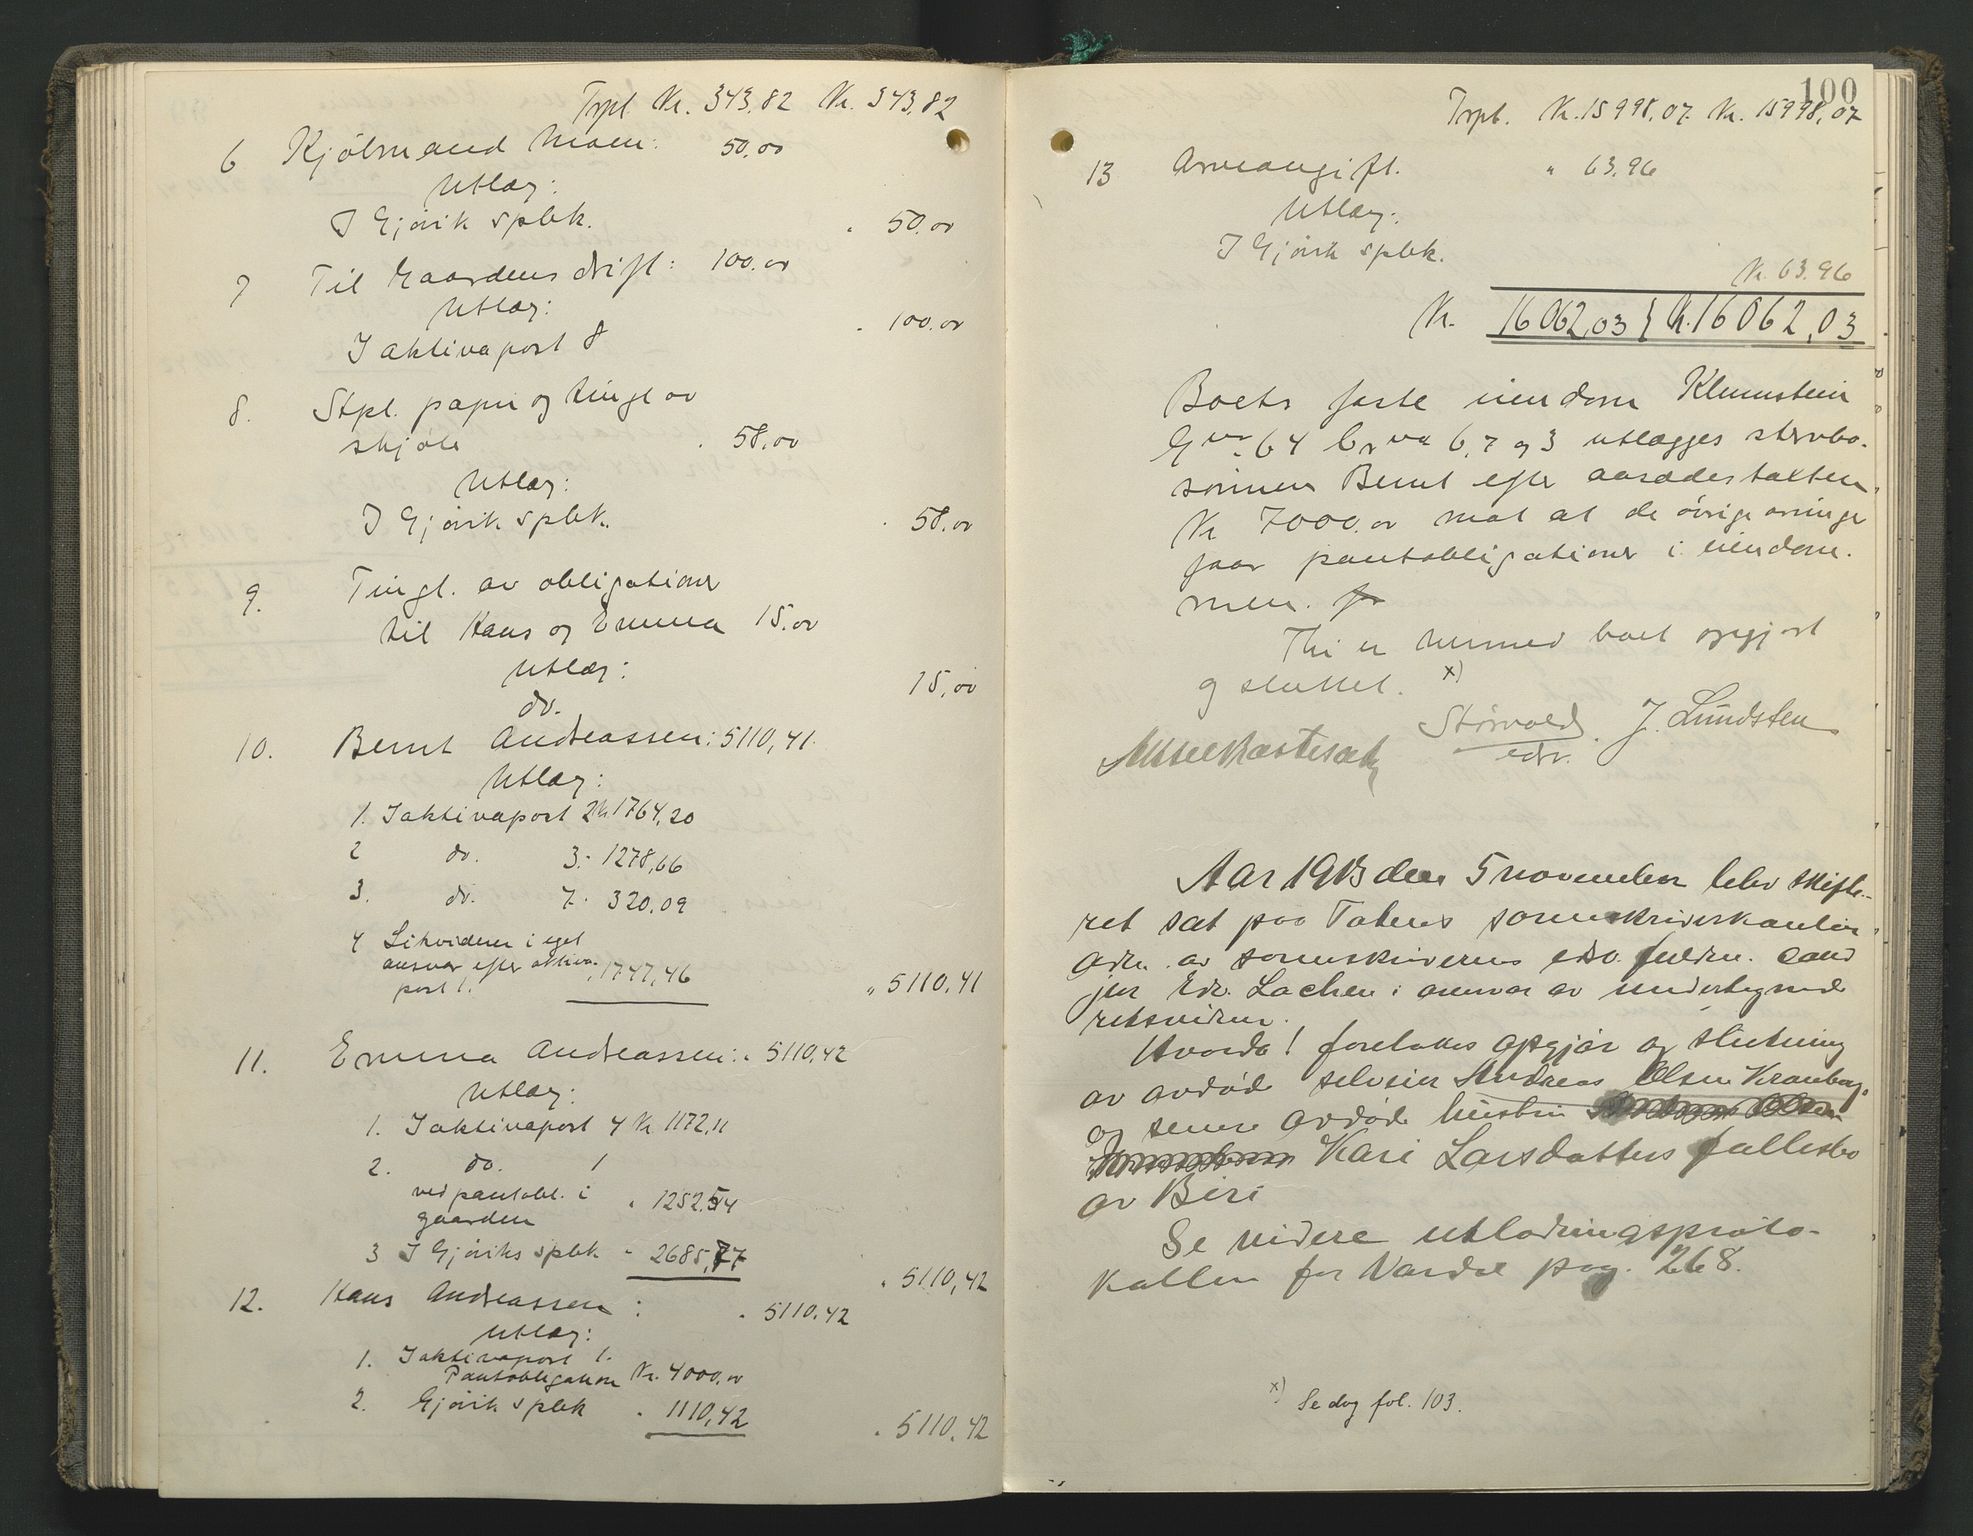 Trpt Kr. 343.82 Kr. 343,82
6 Kjøbmand Moen: 50,00
Utlæg:
I Gjøvik spbk. " 50.00
7 Til Gaardens drift: 100.00
Utlæg:
I aktivapost 8 " 100.00
8. Stpl. papir og tingl av
skjøte " 58,00
Utlæg:
I Gjøvik spbk. " 58.00
9. Tingl. av obligationer
til Hans og Emma 15.00
Utlæg:
do. 15,00
10. Bernt Andreassen: 5110,41.
Utlæg:
1. I aktivapost 2 Kr. 1764,20
2 do. 3.- 1278,66
3. do. 7.- 320,09
4 Likviderer i eget
ansvar efter aktiva-
post 1. " 1747,46 " 5110,41
11. Emma Andreassen: " 5110,42
Utlæg:
1. I aktivapost 4 Kr 1172,11
2. do. 1
ved pantobl. i
gaarden " 1252,54
3 I Gjøviks spbk " 2685,77
" 5110,42
12. Hans Andreassen: " 5110,42
Utlæg:
1. I aktivapost 1.
Pantobligation Kr. 4000,00
2. Gjøvik spbk " 1110,42
" 5110,42
100
Trpt. Kr. 15998,07. Kr. 15998,07
13 Arveavgift. " 63.96
Utlæg:
I Gjøvik spbk.
Kr. 63.96
Kr. 16062,03 } Kr. 16062,03
Boets faste eiendom Klunnstein
Gnr. 64 Brnr 6, 7 og 3 utlægges stervbo-
sønnen Bernt efter aasædestaksten,
Kr 7000.00 mot at de øvrige arvinger
faar pantobligationer i eiendom-
men.
Thi er hermed boet opgjort
og sluttet. x)
edv. J. Lundsten
Aar 1913 den 5 november blev skifte-
ret sat paa Totens sorenskriverkontor,
adm. av sorenskriverens edsv. fuldm. cand
jur Edv. Lochen i overvær av undertegnede
retsvidner.
Hvorda! foretokes opgjør og slutning
av avdøde selveier Andreas Olsen Kronberg
og senere avdøde hustru
Kari Larsdatters fællesbo
av Biri
Se videre utlodningsproto-
kollen for Vardal pag. 268.
x) Se dog fol. 103.